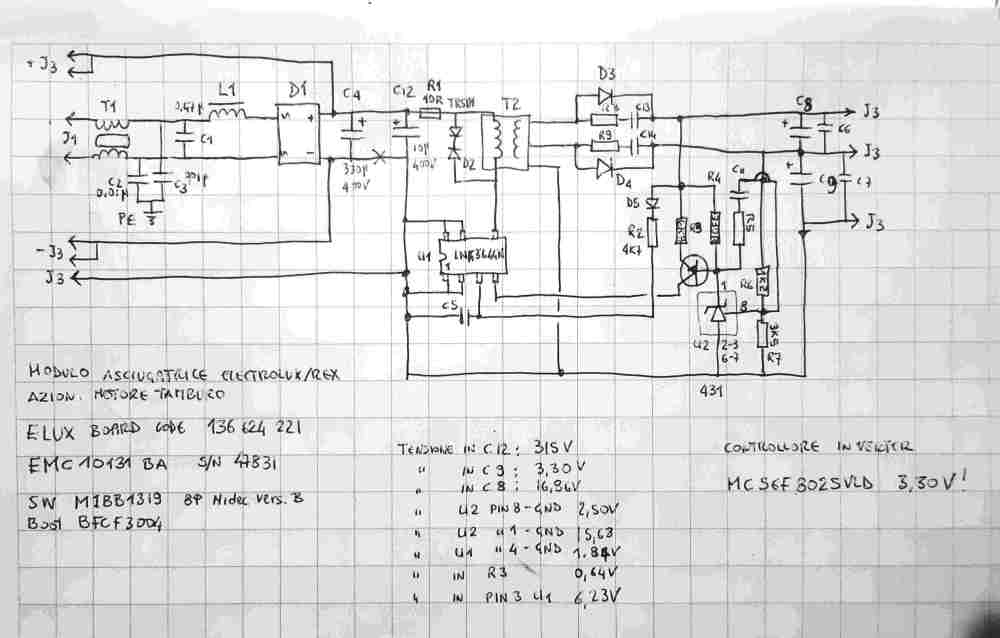 + J3
T1
0,47µ
L1
D1
C4
C12
R1
10R
TRSM
T2
D3
C13
C8
J3
J1
C1
S
+
S
-
+
+
10µ
400V
D2
R9
C14
C6
+
J3
C2
0,01µ
C3
330µ
400V
D4
+
C9
C7
PE
D5
R4
J3
- J3
U1
1
R2
4K7
R5
J3
C5
1
R6
8
3K5
U2
2-3
6-7
R7
431
MODULO ASCIUGATRICE ELECTROLUX/REX
AZION. MOTORE TAMBURO
ELUX BOARD CODE 136 624 221
EMC 10131 BA S/N 47831
SW MIBB1319 BP Nidec vers. B
Boot BFCF3004
TENSIONE IN C12: 315V
" IN C9: 3,30V
" IN C8: 16,36V
" U2 PIN 8-GND 2,50V
" U2 " 1-GND 15,63
" U1 " 4-GND 1.84V
" IN R3 0,64V
" IN PIN 3 U1 6,23V
CONTROLLORE INVERTER
MC56F8025VLD 3,30V!